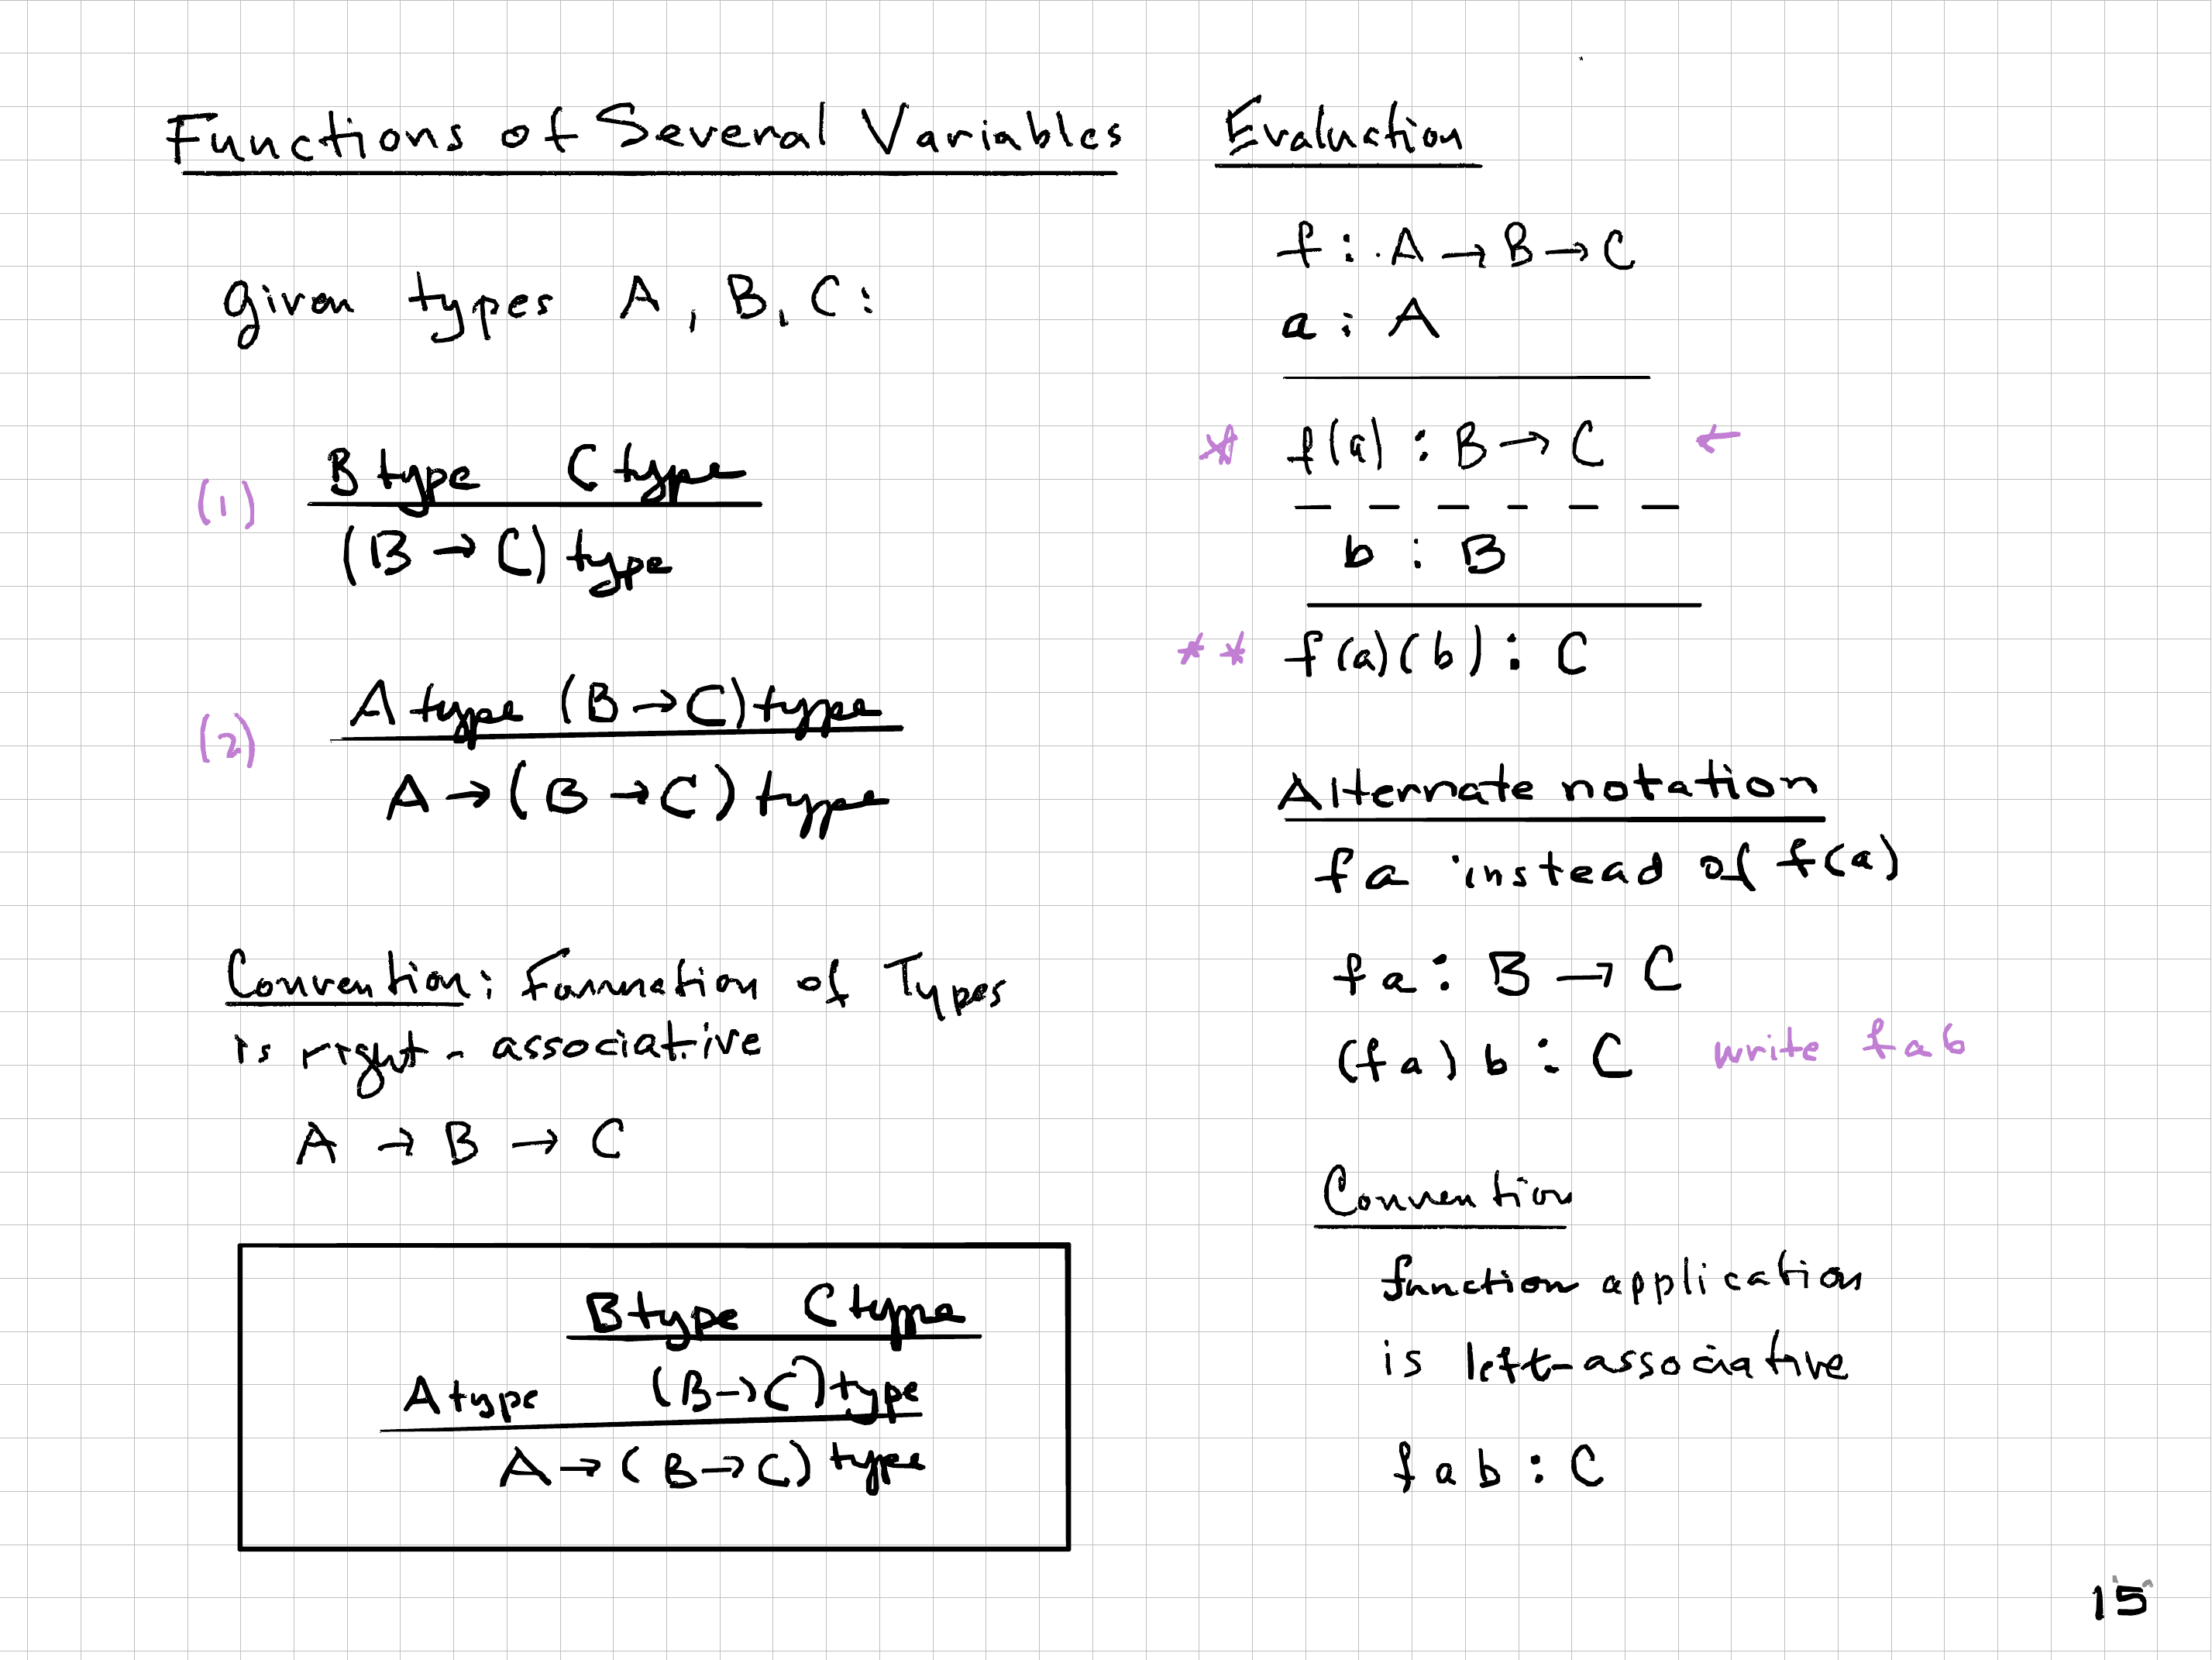 Functions of Several Variables
given types A, B, C:
(1) B type C type
(B → C) type
(2) A type (B → C) type
A → (B → C) type
Convention: Formation of Types
is right-associative
A → B → C
B type C type
A type (B → C) type
A → (B → C) type
Evaluation
f : A → B → C
a : A
* f(a) : B → C ←
b : B
** f(a)(b) : C
Alternate notation
f a instead of f(a)
f a : B → C
(f a) b : C write f a b
Convention
function application
is left-associative
f a b : C
15